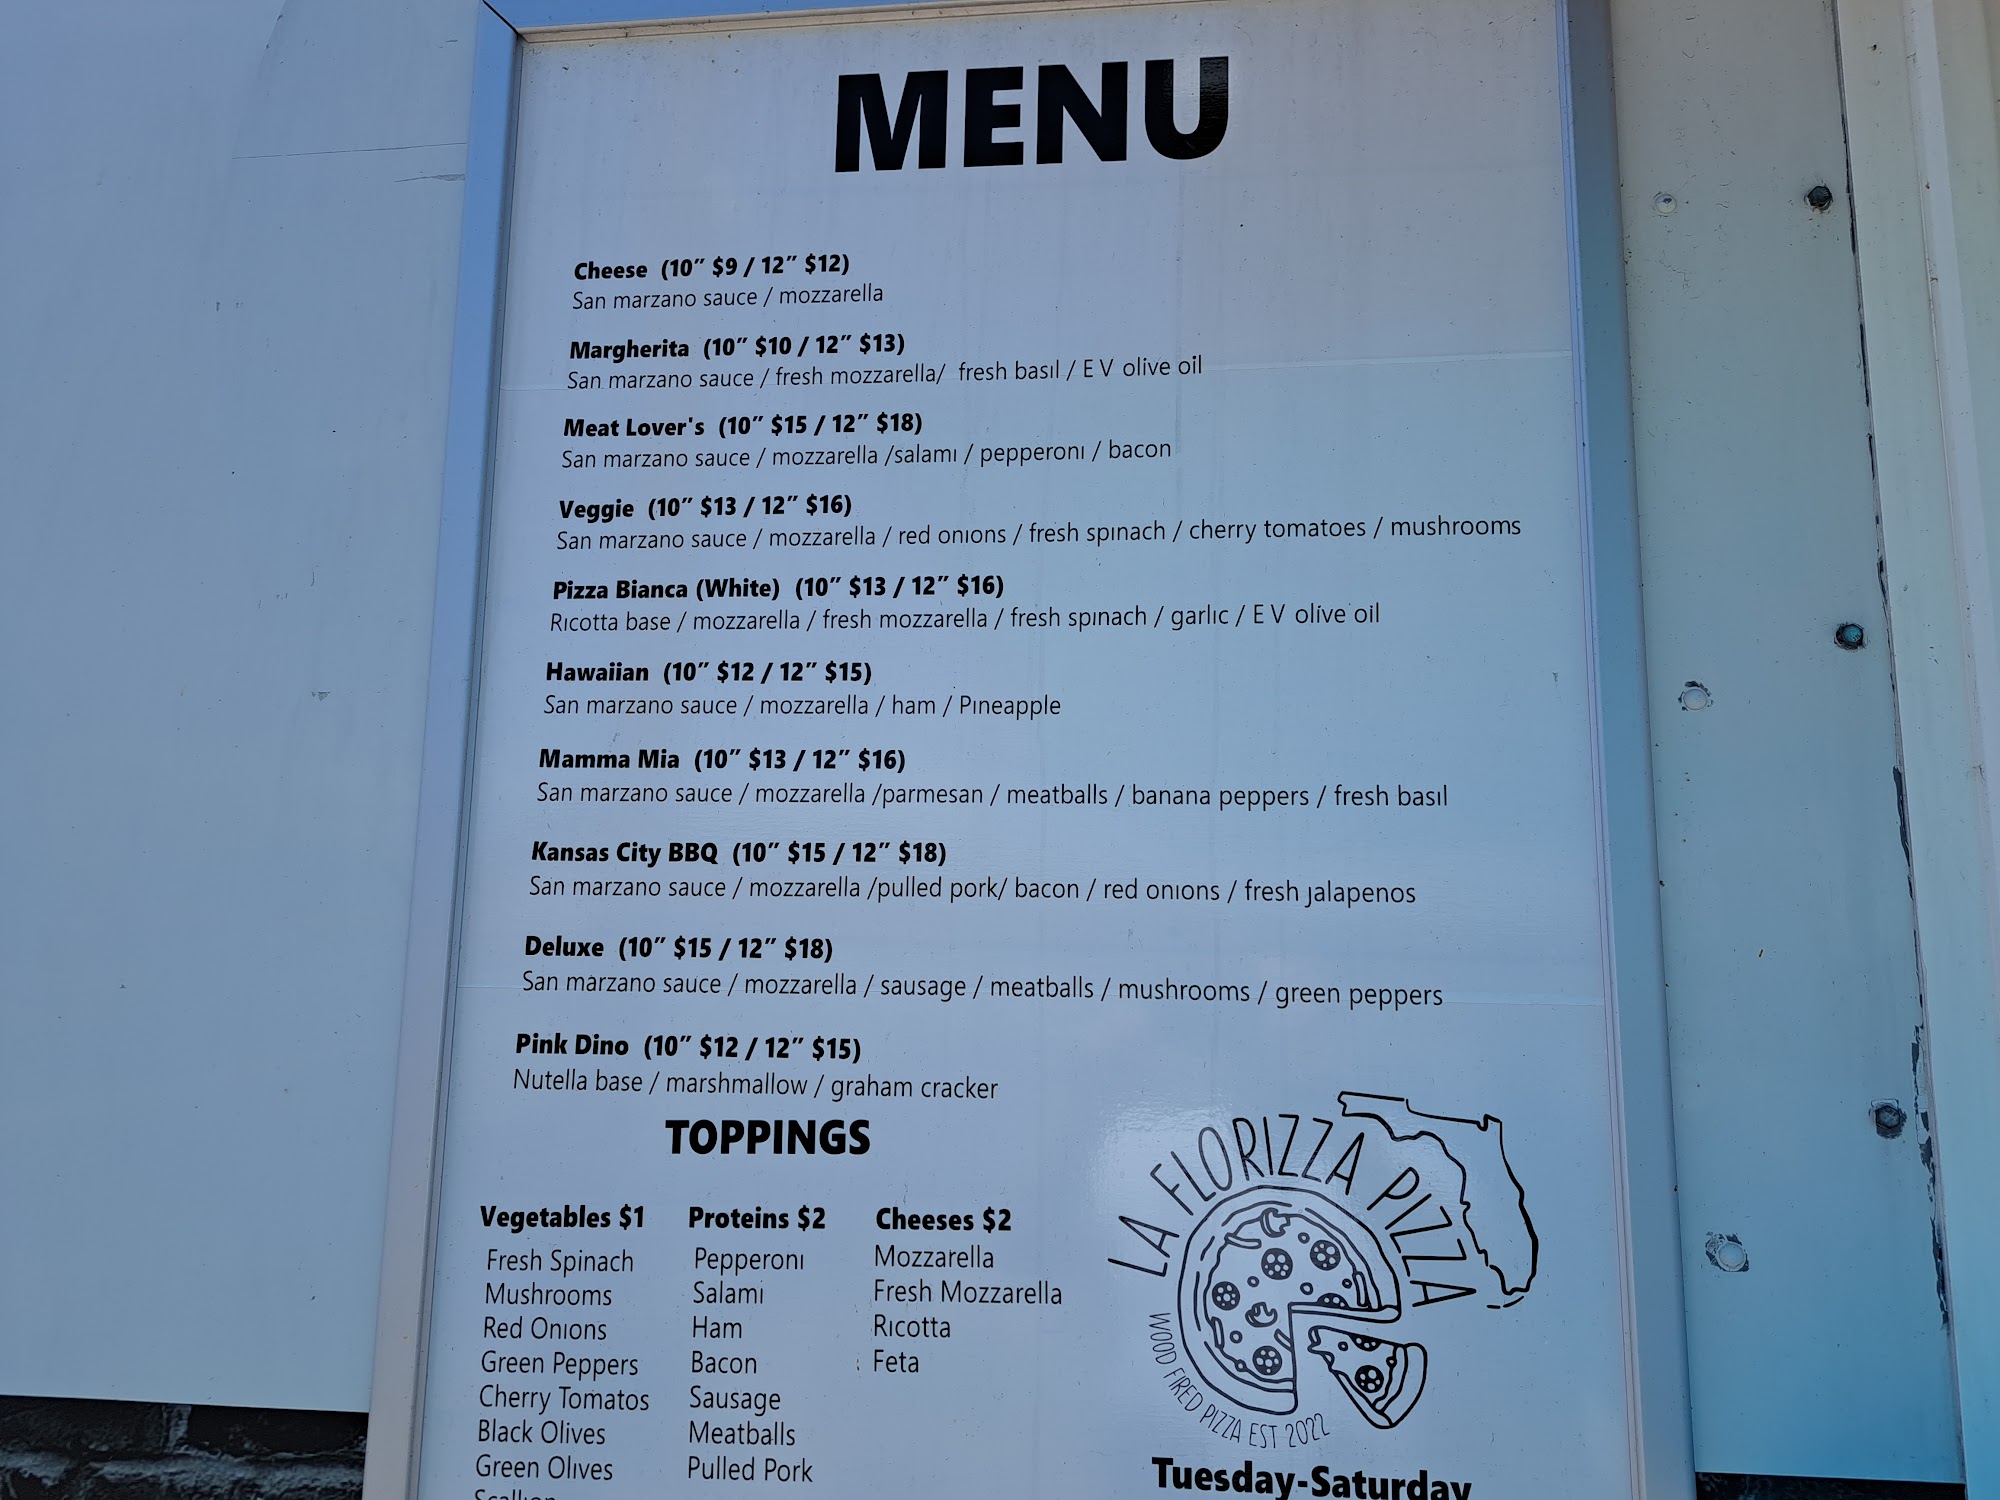 MENU
Cheese (10” $9 / 12” $12)
San marzano sauce / mozzarella
Margherita (10” $10 / 12” $13)
San marzano sauce / fresh mozzarella/ fresh basil / E V olive oil
Meat Lover's (10” $15 / 12” $18)
San marzano sauce / mozzarella /salami / pepperoni / bacon
Veggie (10” $13 / 12” $16)
San marzano sauce / mozzarella / red onions / fresh spinach / cherry tomatoes / mushrooms
Pizza Bianca (White) (10” $13 / 12” $16)
Ricotta base / mozzarella / fresh mozzarella / fresh spinach / garlic / E V olive oil
Hawaiian (10” $12 / 12” $15)
San marzano sauce / mozzarella / ham / Pineapple
Mamma Mia (10” $13 / 12” $16)
San marzano sauce / mozzarella /parmesan / meatballs / banana peppers / fresh basil
Kansas City BBQ (10” $15 / 12” $18)
San marzano sauce / mozzarella /pulled pork/ bacon / red onions / fresh jalapenos
Deluxe (10” $15 / 12” $18)
San marzano sauce / mozzarella / sausage / meatballs / mushrooms / green peppers
Pink Dino (10” $12 / 12” $15)
Nutella base / marshmallow / graham cracker
TOPPINGS
Vegetables $1
Fresh Spinach
Mushrooms
Red Onions
Green Peppers
Cherry Tomatos
Black Olives
Green Olives
Proteins $2
Pepperoni
Salami
Ham
Bacon
Sausage
Meatballs
Pulled Pork
Cheeses $2
Mozzarella
Fresh Mozzarella
Ricotta
Feta
LA FLORIZZA PIZZA
WOOD FIRED PIZZA EST 2022
Tuesday-Saturday